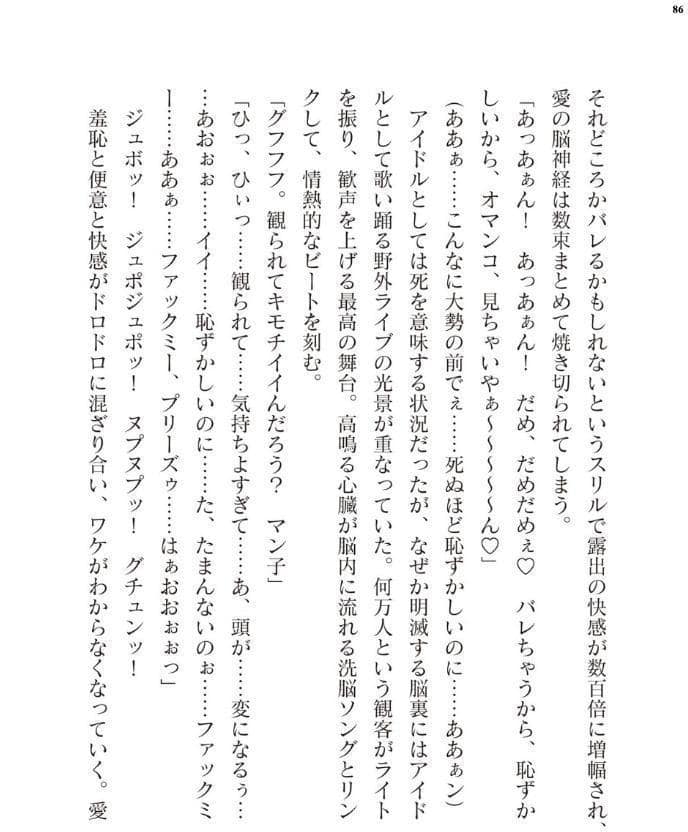 86
それどころかバレるかもしれないというスリルで露出の快感が数百倍に増幅され、
愛の脳神経は数束まとめて焼き切られてしまう。
「あっあぁん！　あっあぁん！　だめ、だめだめぇ♡　バレちゃうから、恥ずか
しいから、オマンコ、見ちゃいやぁ～～～～～ん♡」
(ああぁ……こんなに大勢の前でぇ……死ぬほど恥ずかしいのに……ああぁン)
アイドルとしては死を意味する状況だったが、なぜか明滅する脳裏にはアイド
ルとして歌い踊る野外ライブの光景が重なっていた。何万人という観客がライト
を振り、歓声を上げる最高の舞台。高鳴る心臓が脳内に流れる洗脳ソングとリン
クして、情熱的なビートを刻む。
「グフフフ。観られてキモチイイんだろう？　マン子」
「ひっ、ひぃっ……観られて……気持ちよすぎて……あ、頭が……変になるぅ…
…あおぉぉ……イイ……恥ずかしいのに……た、たまんないのぉ……ファックミ
ー……ああぁ……ファックミー、プリーズゥ……はぁおおぉぉっ」
ジュボッ！　ジュポジュポッ！　ヌプヌプッ！　グチュンッ！
羞恥と便意と快感がドロドロに混ざり合い、ワケがわからなくなっていく。愛